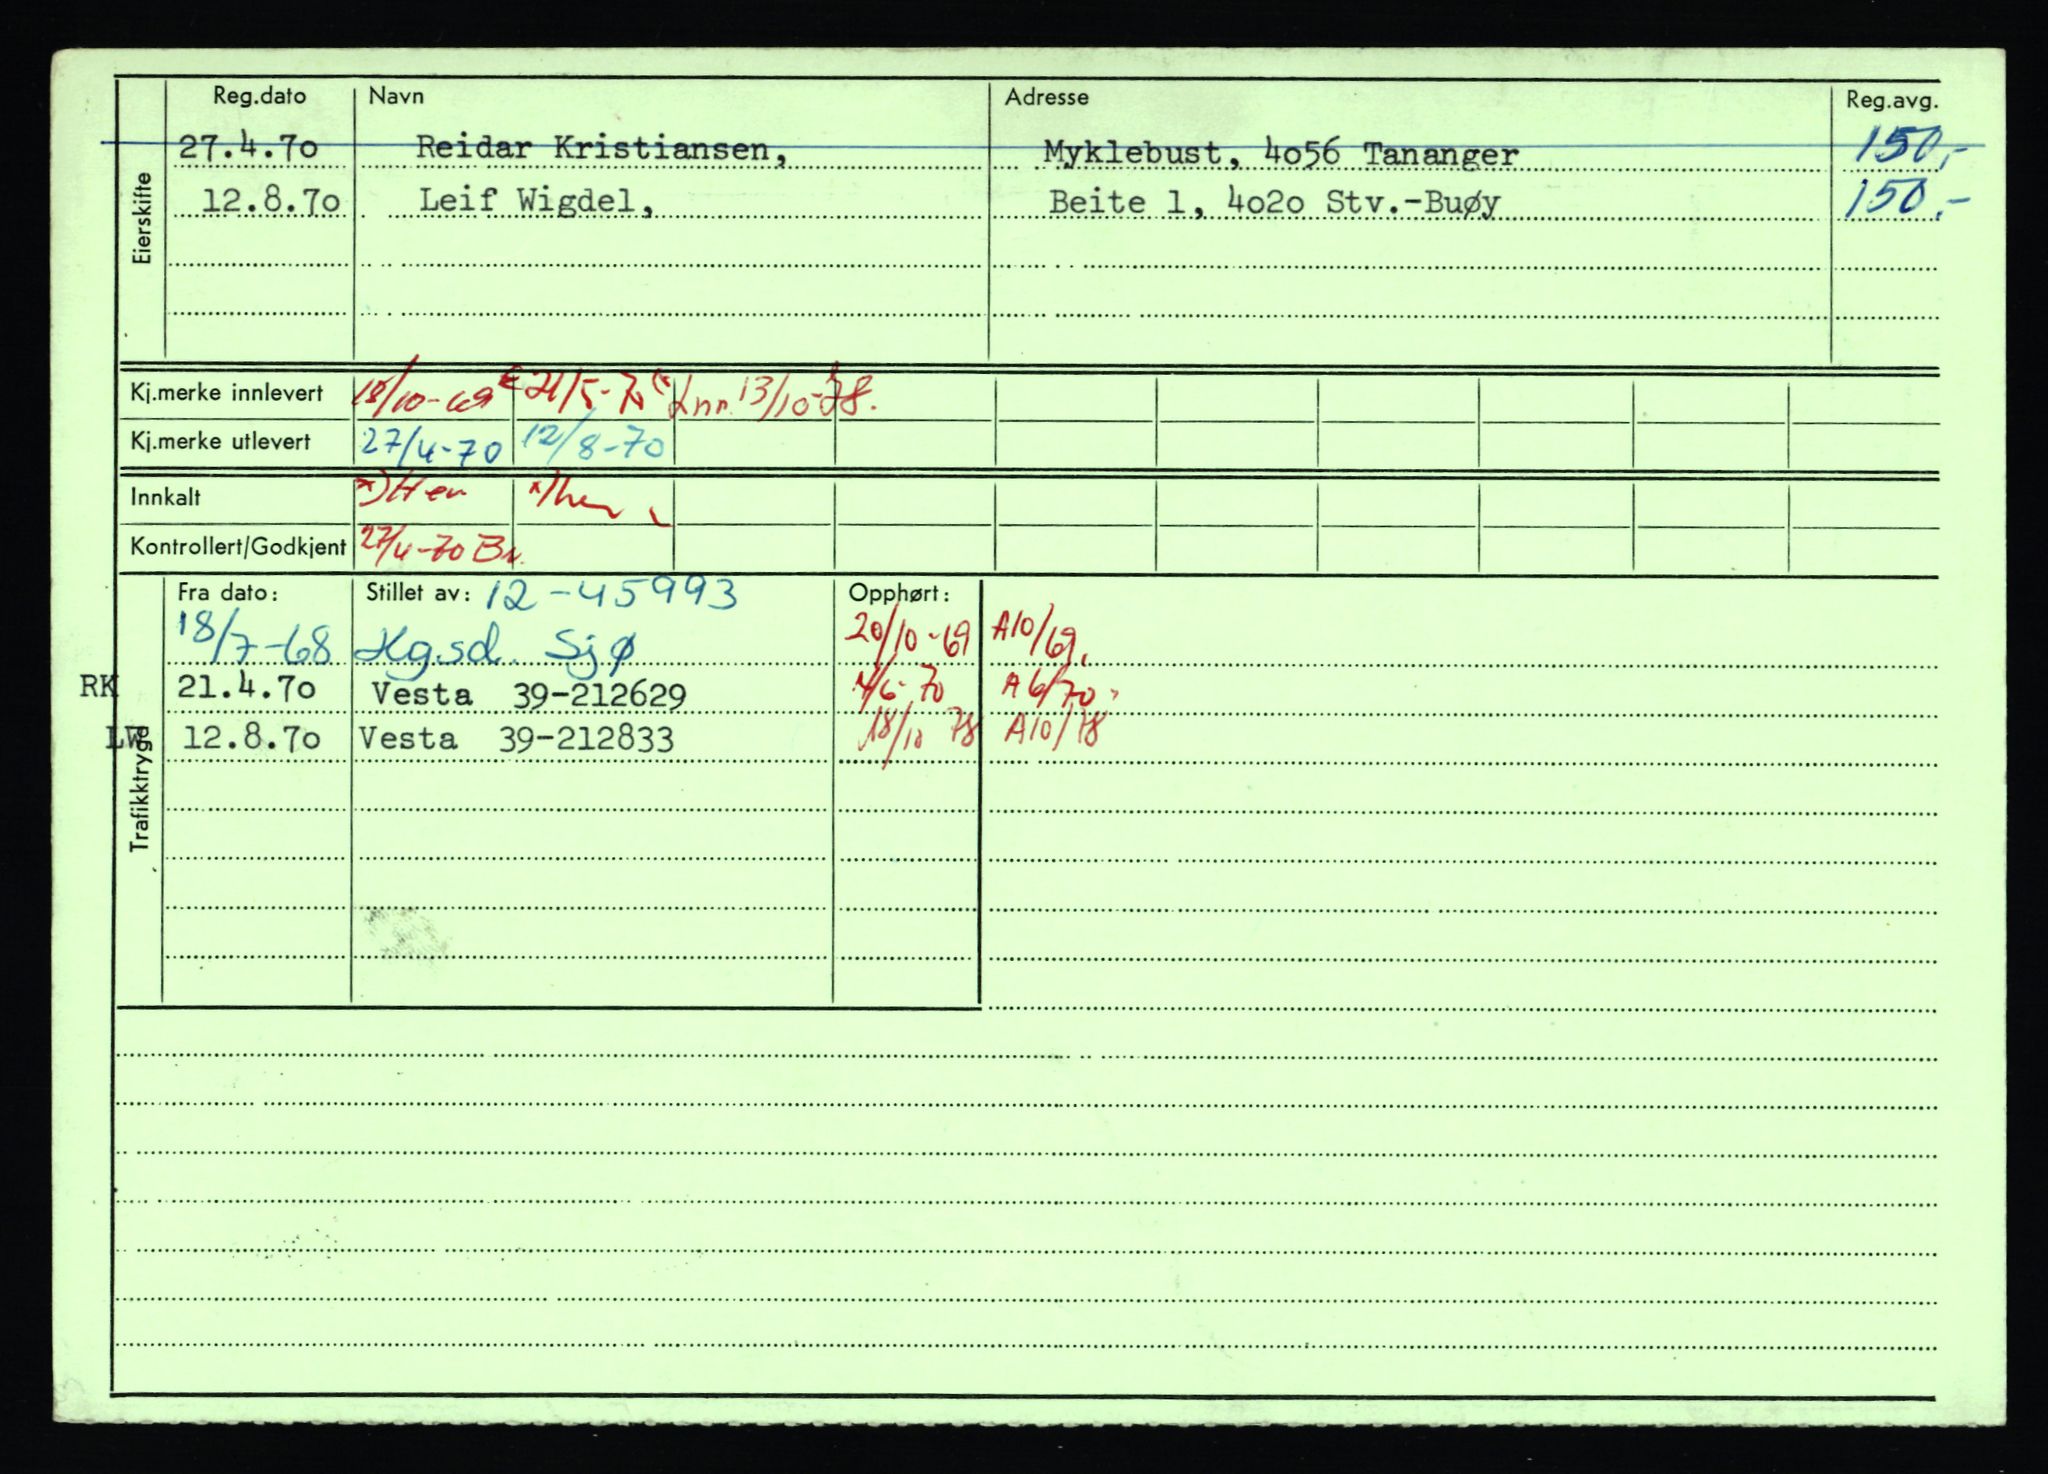 Reg.dato Navn Adresse Reg.avg.
Eierskifte
27.4.70 Reidar Kristiansen, Myklebust, 4056 Tananger 150,-
12.8.70 Leif Wigdel, Beite 1, 4020 Stv.-Buøy 150.-
Kj.merke innlevert 18/10-69 21/5-70 Inn. 13/10-78.
Kj.merke utlevert 27/4-70 12/8-70
Innkalt
Kontrollert/Godkjent 27/4-70
Trafikktrygd
Fra dato: Stillet av: 12-45993 Opphørt:
18/7-68 Hgsd. Sjø 20/10-69 A10/69.
RK 21.4.70 Vesta 39-212629 4/6-70 A6/70
LW 12.8.70 Vesta 39-212833 18/10 78 A10/78